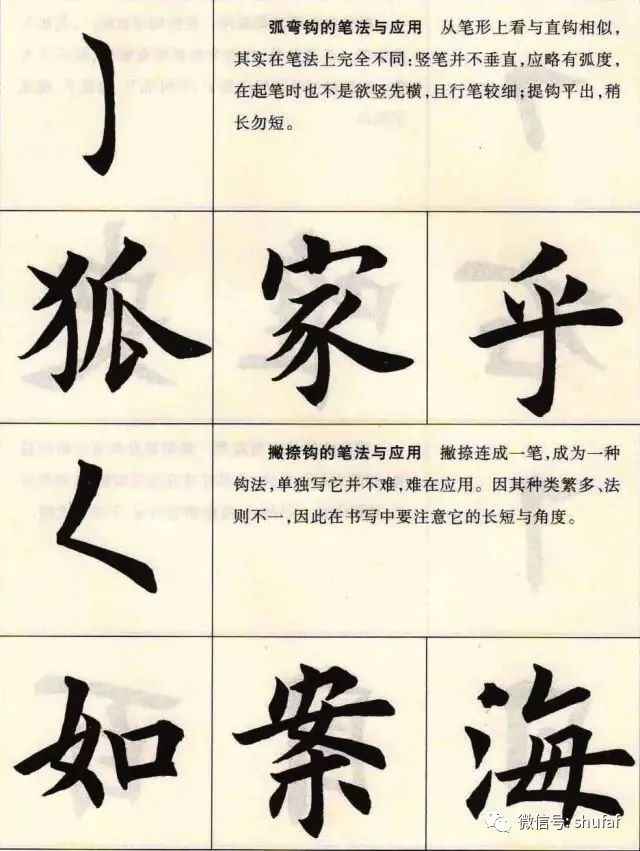 弧弯钩的笔法与应用 从笔形上看与直钩相似,
其实在笔法上完全不同:竖笔并不垂直,应略有弧度,
在起笔时也不是欲竖先横,且行笔较细;提钩平出,稍
长勿短。
狐 家 乎
撇捺钩的笔法与应用 撇捺连成一笔,成为一种
钩法,单独写它并不难,难在应用。因其种类繁多、法
则不一,因此在书写中要注意它的长短与角度。
如 案 海
微信号: shufaf